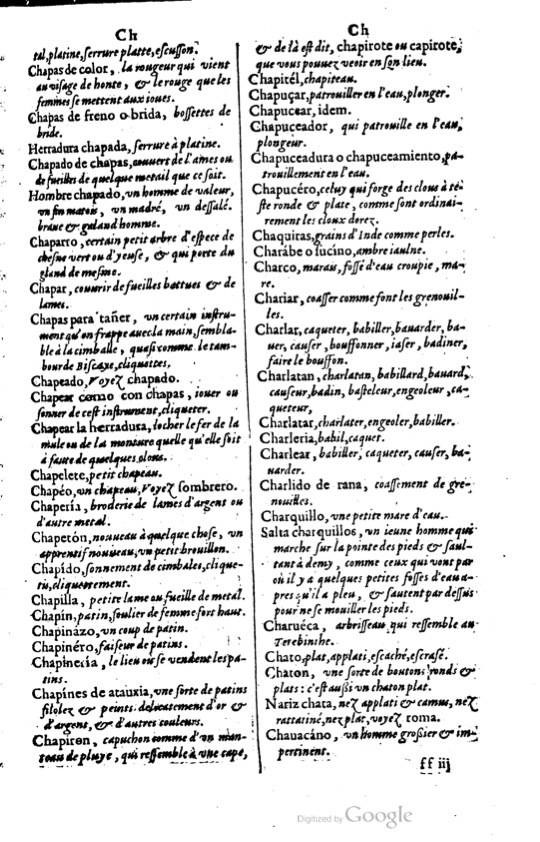 Ch
tal, platine, serrure platte, escusson.
Chapas de color, la rougeur qui vient
au visage de honte, & le rouge que les
femmes se mettent aux ioues.
Chapas de freno o brida, bossettes de
bride.
Herradura chapada, serrure à platine.
Chapado de chapas, couuert de l'ames ou
de fueilles de quelque metail que ce soit.
Hombre chapado, vn homme de valeur,
vn fin matois, vn madré, vn dessalé.
braue & galand homme.
Chaparro, certain petit arbre d'espece de
chesne vert ou d'yeuse, & qui porte du
gland de mesme.
Chapar, couurir de fueilles battues & de
lames.
Chapas para tañer, vn certain instru-
ment qu'on frappe auec la main, sembla-
ble à la cimballe, quasi comme le tam-
bour de Biscaye, cliquettes.
Chapeado, voyez chapado.
Chapear como con chapas, iouer ou
sonner de cest instrument, cliqueter.
Chapear la herradura, locher le fer de la
mule ou de la monture quelle qu'elle soit
à faute de quelques clous.
Chapelete, petit chapeau.
Chapéo, vn chapeau, voyez sombrero.
Chapería, broderie de lames d'argent ou
d'autre metal.
Chapetón, nouueau à quelque chose, vn
apprentif nouueau, vn petit brouillon.
Chapído, sonnement de cimbales, clique-
tis, cliquettement.
Chapilla, petite lame ou fueille de metal.
Chapín, patin, soulier de femme fort haut.
Chapinazo, vn coup de patin.
Chapinéro, faiseur de patins.
Chapinería, le lieu où se vendent les pa-
tins.
Chapínes de atauxia, vne sorte de patins
filolez & peints delicatement d'or &
d'argent, & d'autres couleurs.
Chapiron, capuchon comme d'un man-
teau de pluye, qui ressemble à vne cape,
Ch
& de là est dit, chapirote ou capirote,
que vous pouuez veoir en son lieu.
Chapitél, chapiteau.
Chapuçar, patrouiller en l'eau, plonger.
Chapucear, idem.
Chapuçeador, qui patrouille en l'eau,
plongeur.
Chapuceadura o chapuceamiento, pa-
trouillement en l'eau.
Chapucéro, celuy qui forge des clous à te-
ste ronde & plate, comme sont ordinai-
rement les cloux dorez.
Chaquiras, grains d'Inde comme perles.
Charábe o sucino, ambre iaulne.
Charco, marais, fossé d'eau croupie, ma-
re.
Chariar, coasser comme font les grenouil-
les.
Charlar, caqueter, babiller, bauarder, ba-
uer, causer, bouffonner, iaser, badiner,
faire le bouffon.
Charlatan, charlatan, babillard, bauard,
causeur, badin, basteleur, engeoleur, ca-
queteur,
Charlatar, charlater, engeoler, babiller.
Charleria, babil, caquet.
Charlear, babiller, caqueter, causer, ba-
uarder.
Charlido de rana, coassement de gre-
nouilles.
Charquillo, vne petite mare d'eau.
Salta charquillos, vn ieune homme qui
marche sur la pointe des pieds & saul-
tant à demy, comme ceux qui vont par
où il y a quelques petites fosses d'eau a-
pres qu'il a pleu, & sautent par dessus
pour ne se mouiller les pieds.
Charuéca, arbrisseau qui ressemble au
Terebinthe.
Chato, plat, applati, escaché, escrasé.
Chaton, vne sorte de boutons ronds &
plats: c'est aussi vn chaton plat.
Nariz chata, nez applati & camus, nez
rattatiné, nez plat, voyez roma.
Chauacáno, vn homme grossier & im-
pertinent.
ff iij
Digitized by Google